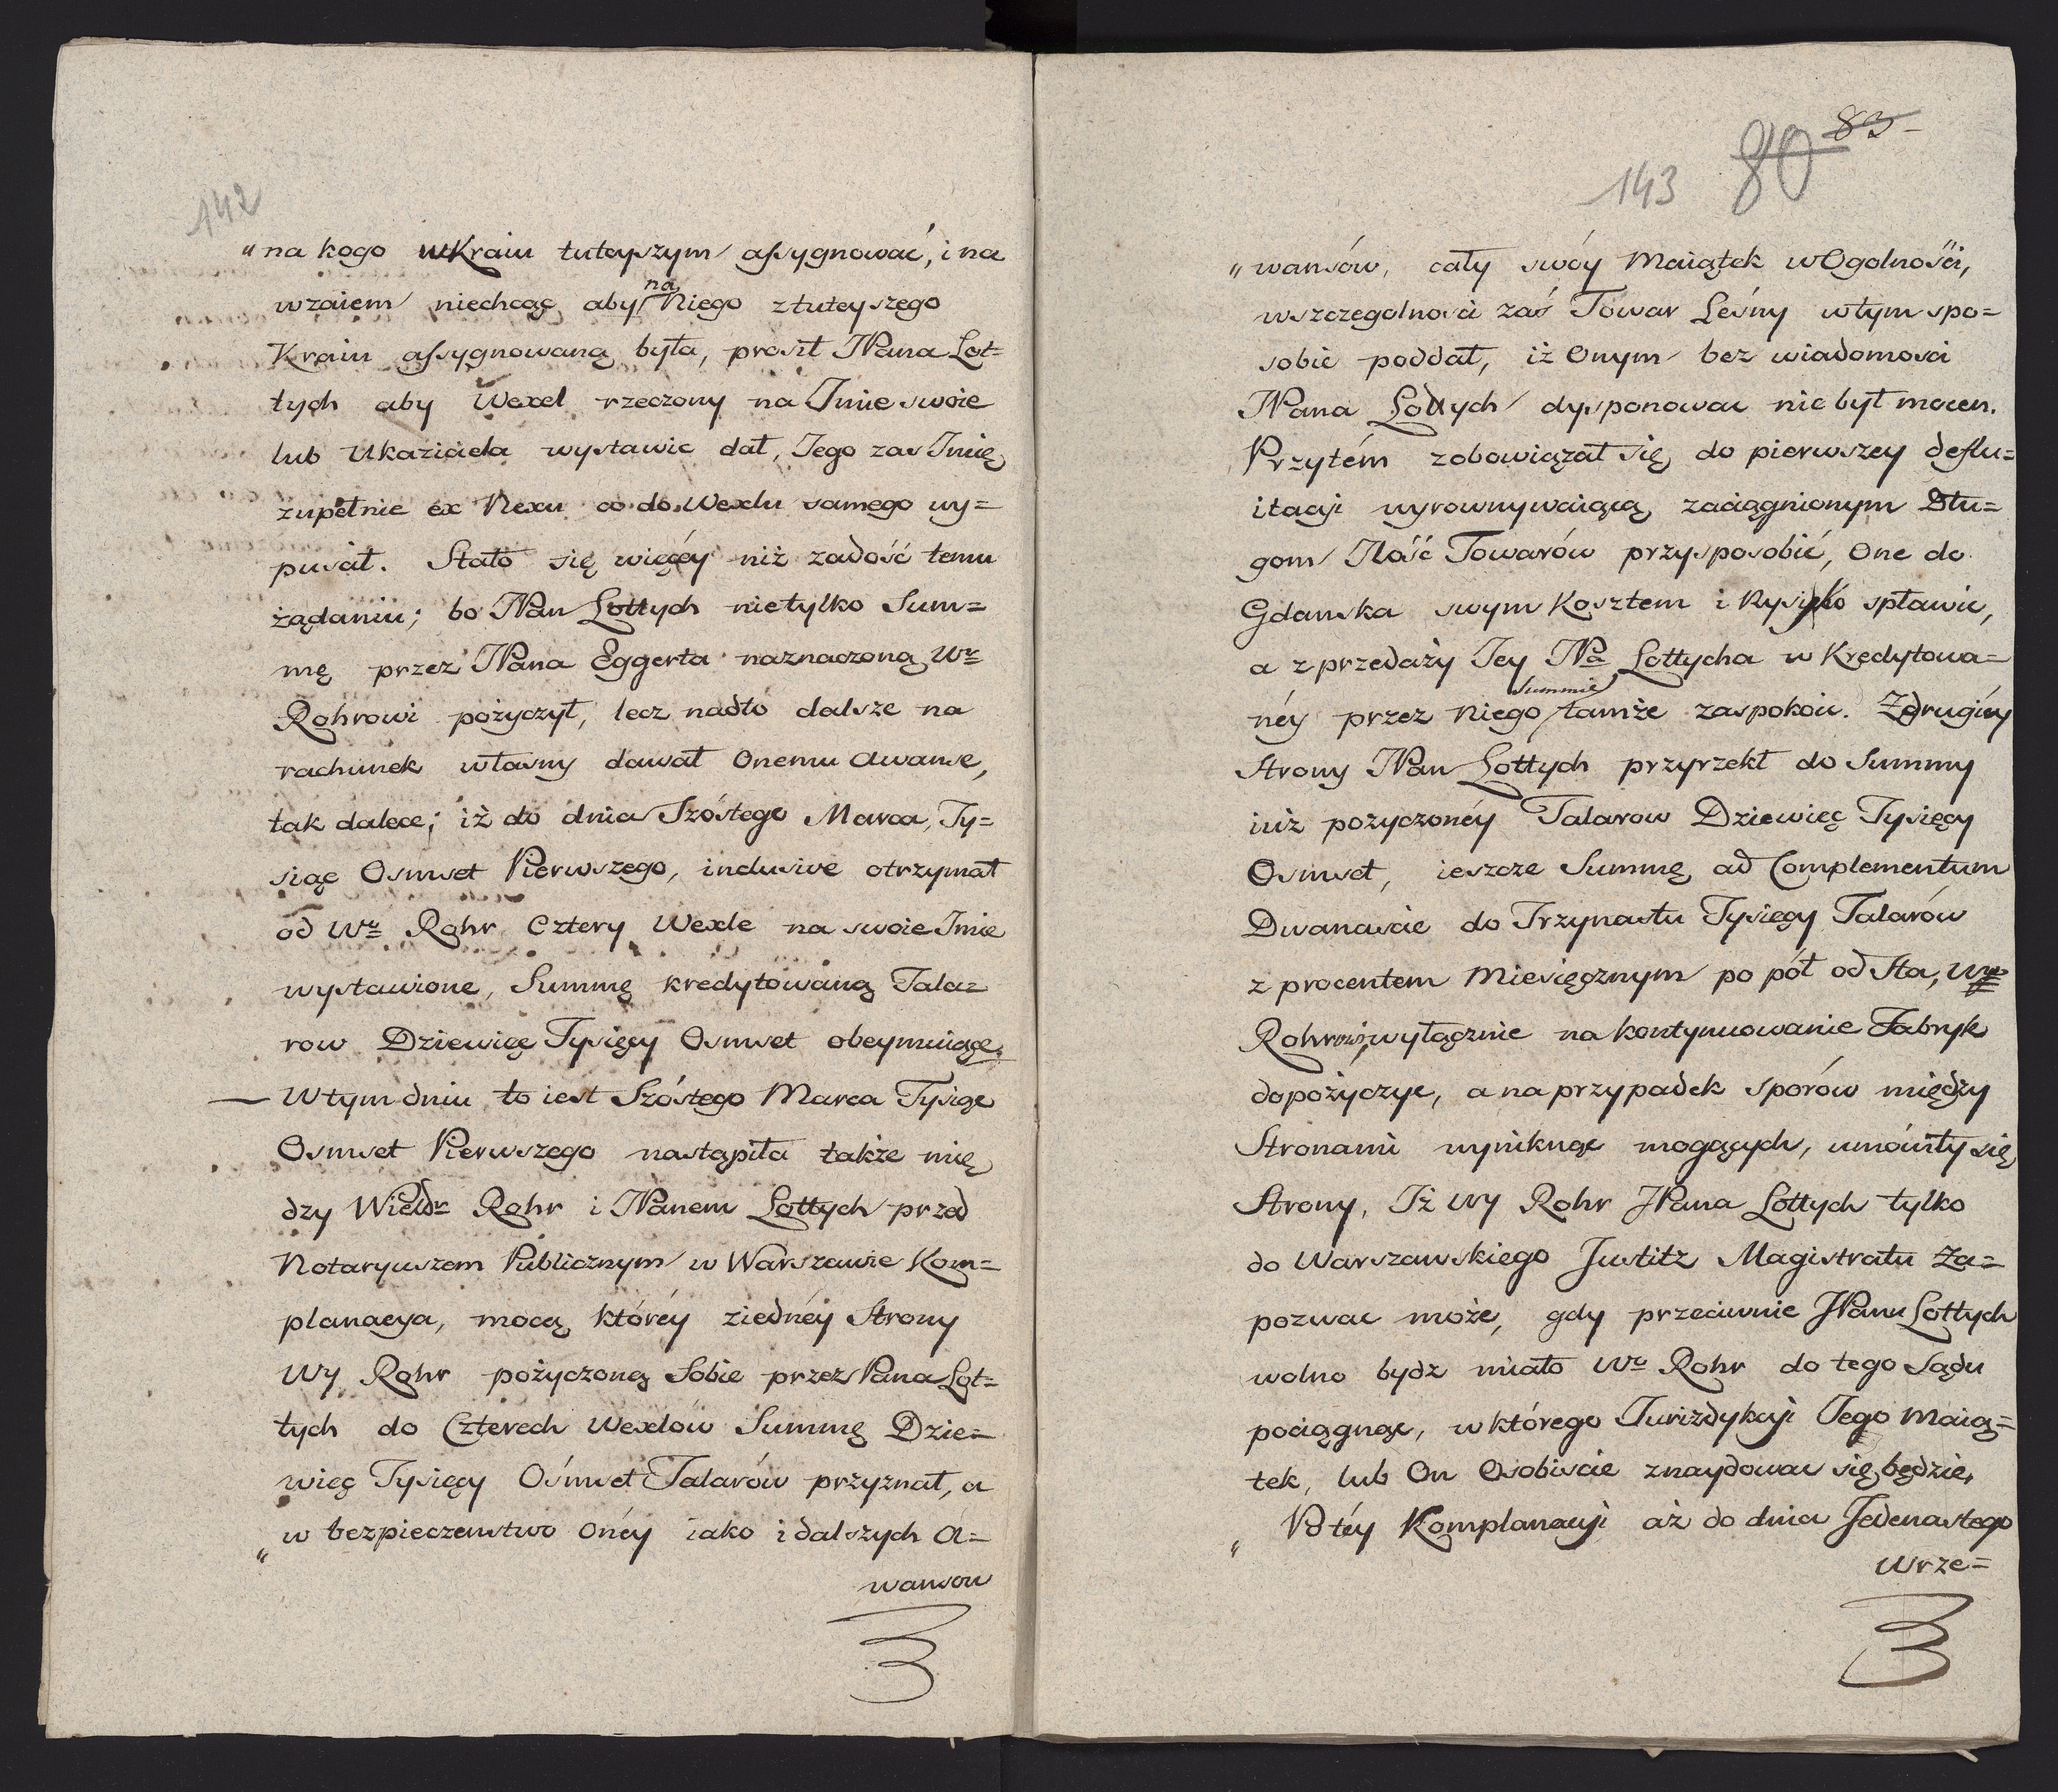 142
„na kogo w Kraiu tuteyszym assygnować, i na
wzaiem niechcąc aby na Niego z tuteyszego
Kraiu assygnowaną była, prosił JPana Lot=
tych aby Wexel rzeczony na Imie swoie
lub Ukaziciela wystawic dał, Jego zas Imię
zupełnie ex Nexu co do Wexlu samego wy=
pusał. Stało się więcéy niż zadość temu
żądaniu; bo JPan Lottych nietylko Sum=
mę przez JPana Eggerta naznaczoną Wu
Rohrowi pożyczył, lecz nadto dalsze na
rachunek własny dawał Onemu Awanse,
tak dalece; iż do dnia Szóstego Marca, Ty=
siąc Osmset Pierwszego, inclusive otrzymał
od Wo Rohr Cztery Wexle na swoie Imie
wystawione, Summę kredytowaną Tala=
row Dziewięc Tysięcy Osmset obeymuiące.
— W tym dniu to iest Szóstego Marca Tysiąc
Osmset Pierwszego nastąpiła także mię
dzy Wielm Rohr i JPanem Lottych przed
Notaryuszem Publicznym w Warszawie Kom=
planacya, mocą któréy ziednéy Strony
Wy Rohr pożyczoną Sobie przez Pana Lot=
tych do Czterech Wexlow Summę Dzie=
więc Tysięcy Ośmset Talarów przyznał, a
„w bezpieczenstwo Onéy iako i dalszych A=
wansow
83
143 80
„wansów, cały swóy Maiątek w Ogolności,
wszczegolnosci zaś Towar Leśny w tym spo=
sobie poddał, iż Onym bez wiadomosci
JPana Lottych dysponowac nie był mocen.
Przytém zobowiązał się do pierwszey deflu=
itacji wyrownywaiącą zaciągnionym Dłu=
gom Ilość Towarów przysposobić, One do
Gdanska swym Kosztem i Rysyko spławic,
a z przedaży Jey JPa Lottycha w Kredytowa=
néy przez Niego Summie tamże zaspokoic. Zdrugiéy
Strony JPan Lottych przyrzekł do Summy
iuż pożyczonéy Talarow Dziewięc Tysięcy
Osmset, ieszcze Summę ad Complementum
Dwanascie do Trzynastu Tysięcy Talarów
z procentem Miesięcznym po pół od Sta, Wu
Rohrowi wyłącznie na kontynuowanie Fabryk
dopożyczyc, a na przypadek sporów między
Stronami wyniknąc mogących, umówiły się
Strony, Iż Wy Rohr JPana Lottych tylko
do Warszawskiego Justitz Magistratu Za=
pozwac może, gdy przeciwnie JPanu Lottych
wolno bydz miało Wo Rohr do tego Sądu
pociągnąc, w którego Jurizdykcji Jego Maią=
tek, lub On Osobiscie znaydowac się będzie,
„Po téy Komplanacyi aż do dnia Jedenastego
Wrze=